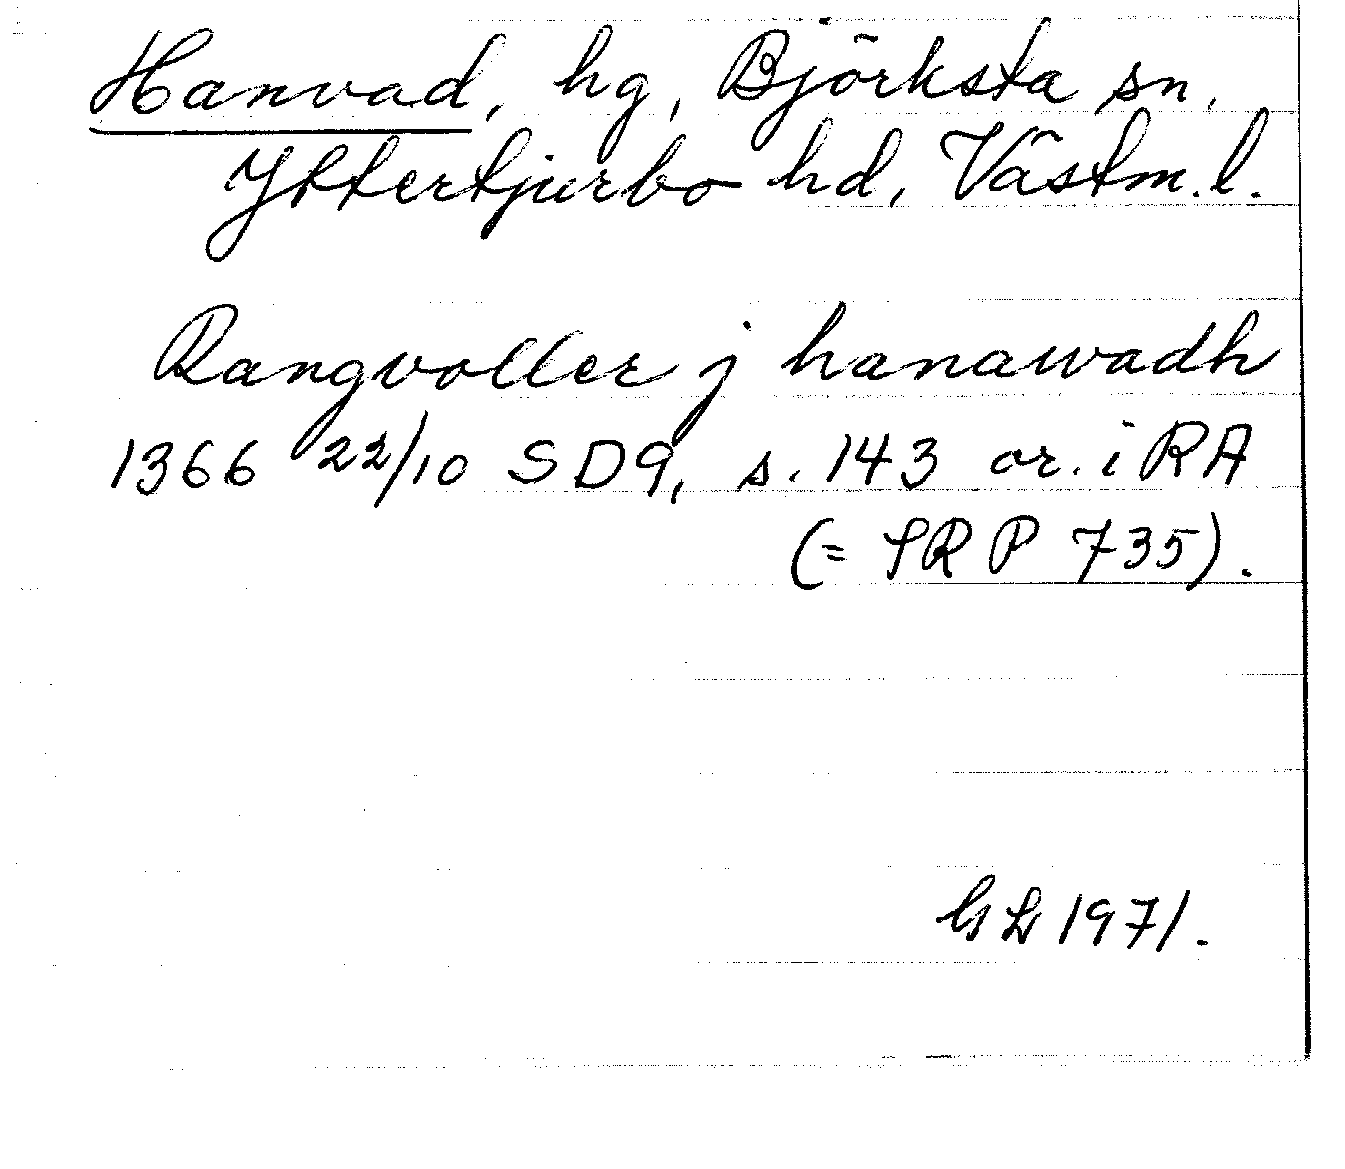 Hanvad, hg, Björksta sn.
Yttertjurbo hd, Västm. l.
Rangvoller j hanawadh
1366 22/10 SD9, s. 143 or. i RA
(= SRP 735).
GL 1971.